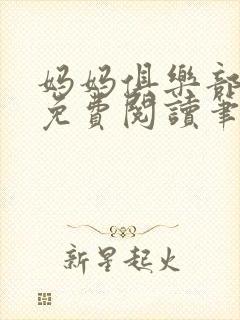 妈妈俱樂部
免費閱讀筆
新星起火